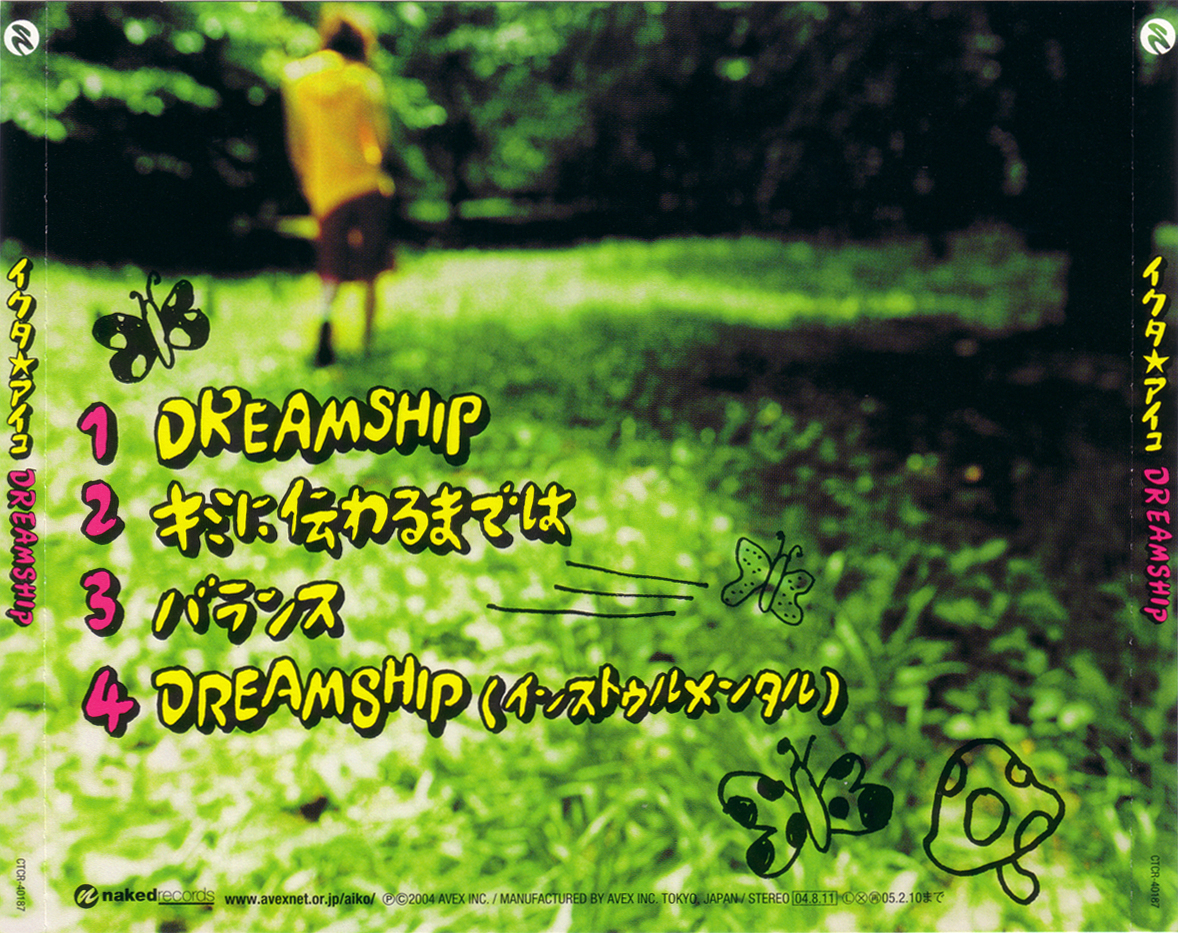 イクタ★アイコ DREAMSHIP
CTCR-40187
1 DREAMSHIP
2 キミに伝わるまでは
3 バランス
4 DREAMSHIP (インストゥルメンタル)
nakedrecords www.avexnet.or.jp/aiko/ ⓅⒸ2004 AVEX INC. / MANUFACTURED BY AVEX INC. TOKYO, JAPAN / STEREO 04.8.11 Ⓛⓧ㊢05.2.10まで
イクタ★アイコ DREAMSHIP
CTCR-40187